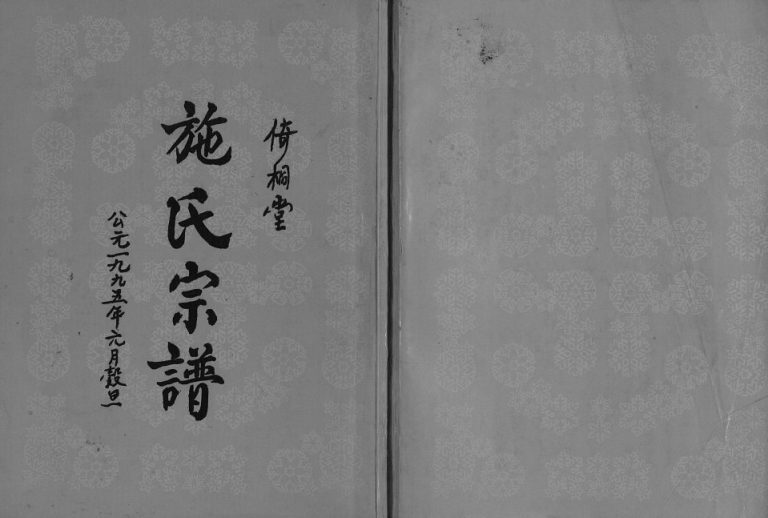 倚桐堂
施氏宗譜
公元一九九五年元月穀旦